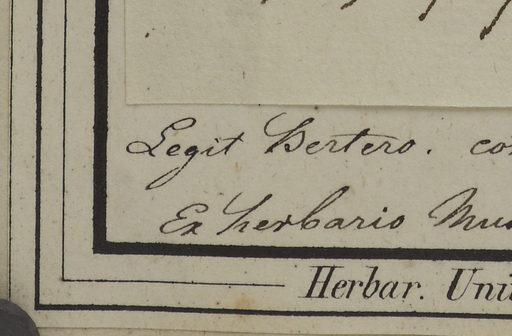 Legit Bertero. co
Ex herbario Mus
Herbar. Uni